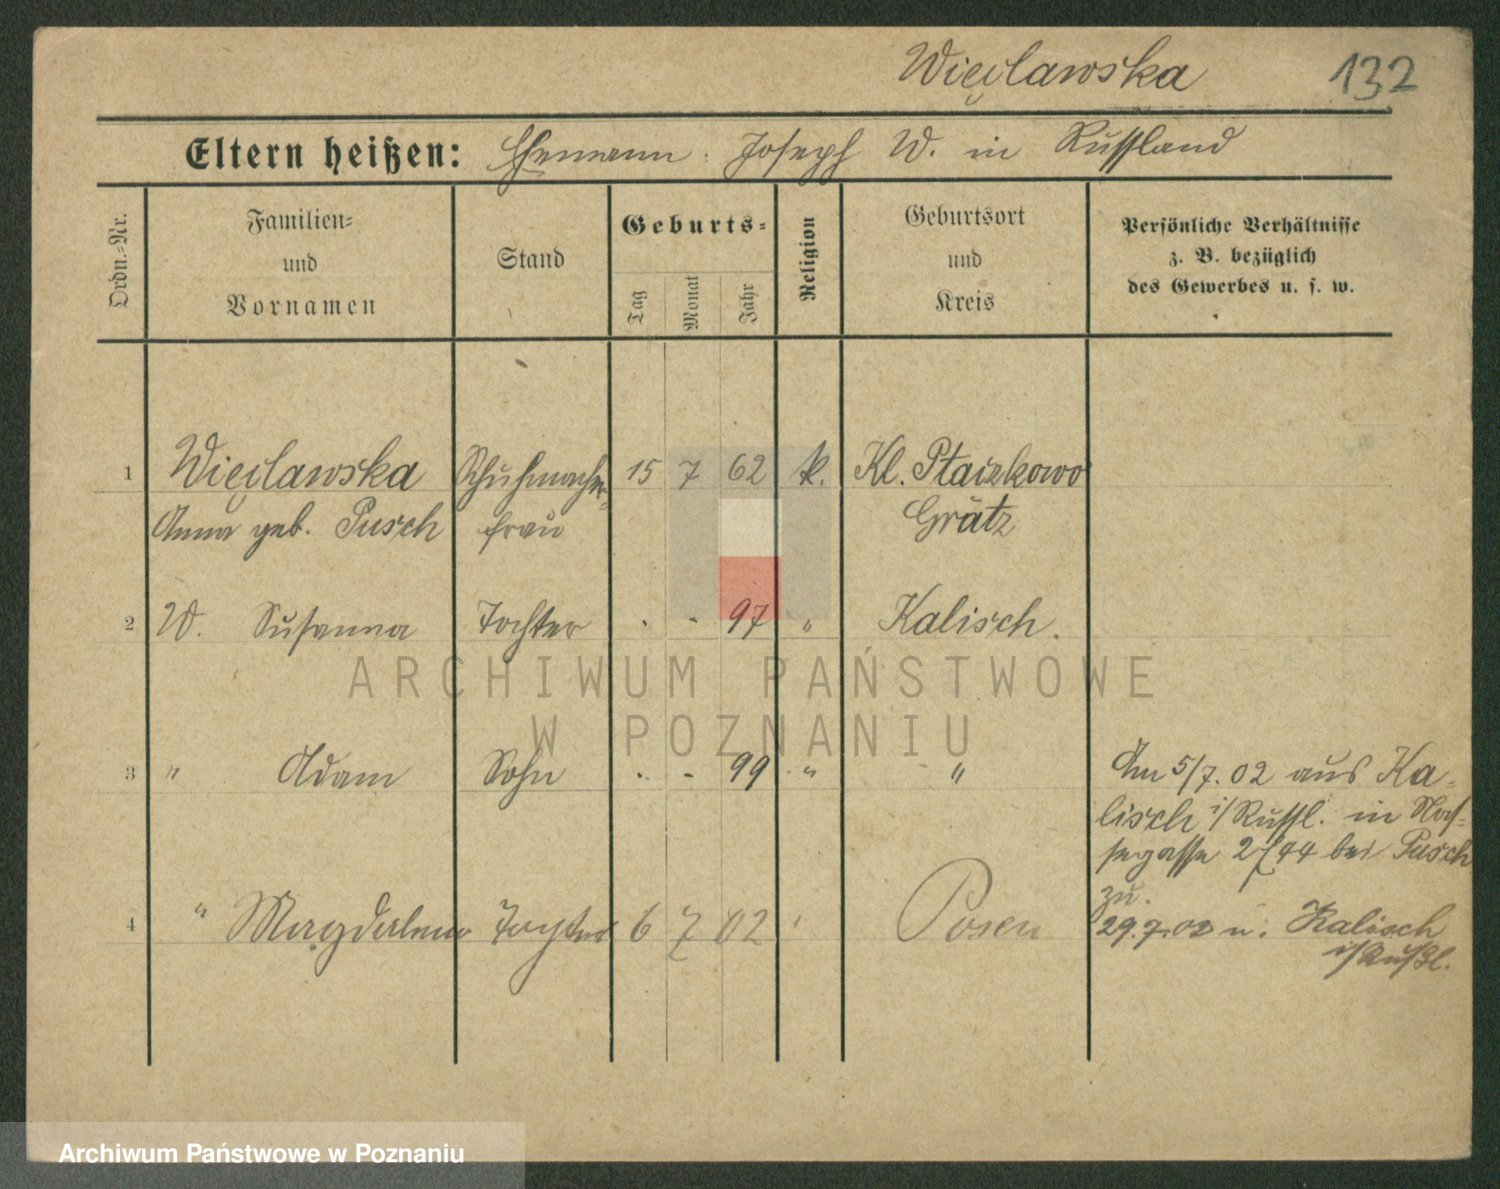 Więcławska 132
Eltern heißen: Ehemann: Joseph W. in Russland
Ordn.-Nr.
Familien-
und
Vornamen
Stand
Geburts-
Tag
Monat
Jahr
Religion
Geburtsort
und
Kreis
Persönliche Verhältnisse
z. B. bezüglich
des Gewerbes u. s. w.
1 Więcławska Schuhmacher- 15 7 62 k. Kl. Ptaszkowo
Anna geb. Pusch frau Grätz
2 W. Susanna Tochter . - 97 " Kalisch.
ARCHIWUM PAŃSTWOWE
W POZNANIU
3 " Adam Sohn . - 99 " "
Am 5/7. 02 aus Ka-
lisch i/Russl. in
2/44 bei Pusch
zu.
4 " Magdalena Tochter 6 7 02 " Posen
29.7.02 n. Kalisch
i/Rußl.
Archiwum Państwowe w Poznaniu